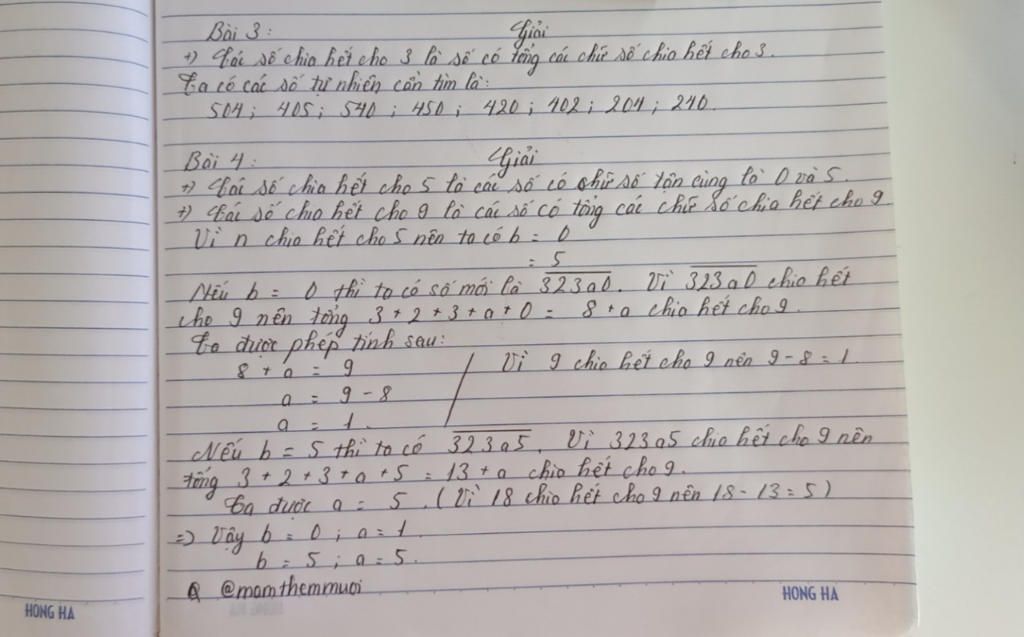 Bài 3: Giải
+) Các số chia hết cho 3 là số có tổng các chữ số chia hết cho 3.
Ta có các số tự nhiên cần tìm là:
504; 405; 540; 450; 420; 402; 204; 240.
Bài 4: Giải
+) Các số chia hết cho 5 là các số có chữ số tận cùng là 0 và 5.
+) Các số chia hết cho 9 là các số có tổng các chữ số chia hết cho 9
Vì n chia hết cho 5 nên ta có b = 0
= 5
Nếu b = 0 thì ta có số mới là 323a0. Vì 323a0 chia hết
cho 9 nên tổng 3 + 2 + 3 + a + 0 = 8 + a chia hết cho 9.
Ta được phép tính sau:
8 + a = 9 / Vì 9 chia hết cho 9 nên 9 - 8 = 1.
a = 9 - 8
a = 1.
Nếu b = 5 thì ta có 323a5. Vì 323a5 chia hết cho 9 nên
tổng 3 + 2 + 3 + a + 5 = 13 + a chia hết cho 9.
Ta được a = 5. (Vì 18 chia hết cho 9 nên 18 - 13 = 5)
=> Vậy b = 0; a = 1.
b = 5; a = 5.
@mamthemmuoi
HONG HA
HONG HA